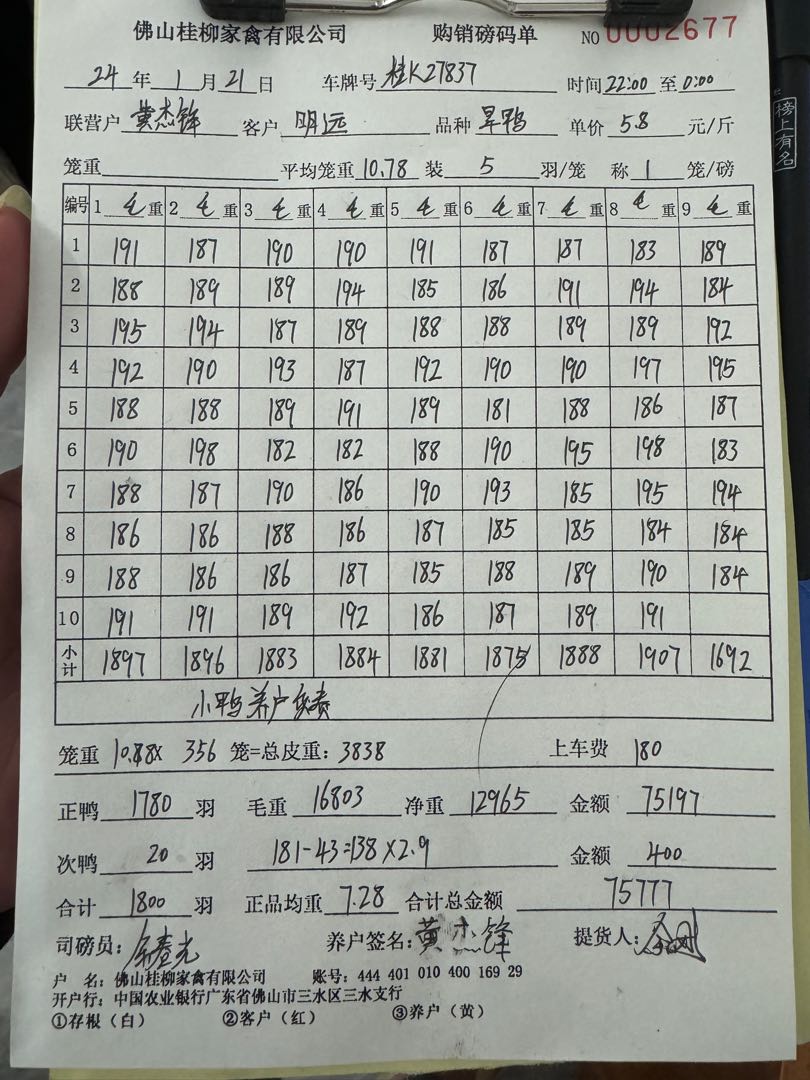 佛山桂柳家禽有限公司 购销磅码单 NO 0002677
24 年 1 月 21 日 车牌号 桂K27837 时间 22:00 至 0:00
联营户 黄杰锋 客户 明远 品种 旱鸭 单价 5.8 元/斤
笼重 平均笼重 10.78 装 5 羽/笼 称 1 笼/磅
编号 1 毛重 2 毛重 3 毛重 4 毛重 5 毛重 6 毛重 7 毛重 8 毛重 9 毛重
1 191 187 190 190 191 187 187 183 189
2 188 189 189 194 185 186 191 194 184
3 195 194 187 189 188 188 189 189 192
4 192 190 193 187 192 190 190 197 195
5 188 188 189 191 189 181 188 186 187
6 190 198 182 182 188 190 195 198 183
7 188 187 190 186 190 193 185 195 194
8 186 186 188 186 187 185 185 184 184
9 188 186 186 187 185 188 189 190 184
10 191 191 189 192 186 187 189 191
小计 1897 1896 1883 1884 1881 1875 1888 1907 1692
小鸭养户负责
笼重 X 356 笼=总皮重: 3838 上车费 180
正鸭 1780 羽 毛重 16803 净重 12965 金额 75197
次鸭 20 羽 181-43=138X2.9 金额 400
合计 1800 羽 正品均重 7.28 合计总金额 75777
司磅员: 养户签名: 黄杰锋 提货人:
户 名: 佛山桂柳家禽有限公司 账号: 444 401 010 400 169 29
开户行: 中国农业银行广东省佛山市三水区三水支行
①存根（白） ②客户（红） ③养户（黄）
榜上有名